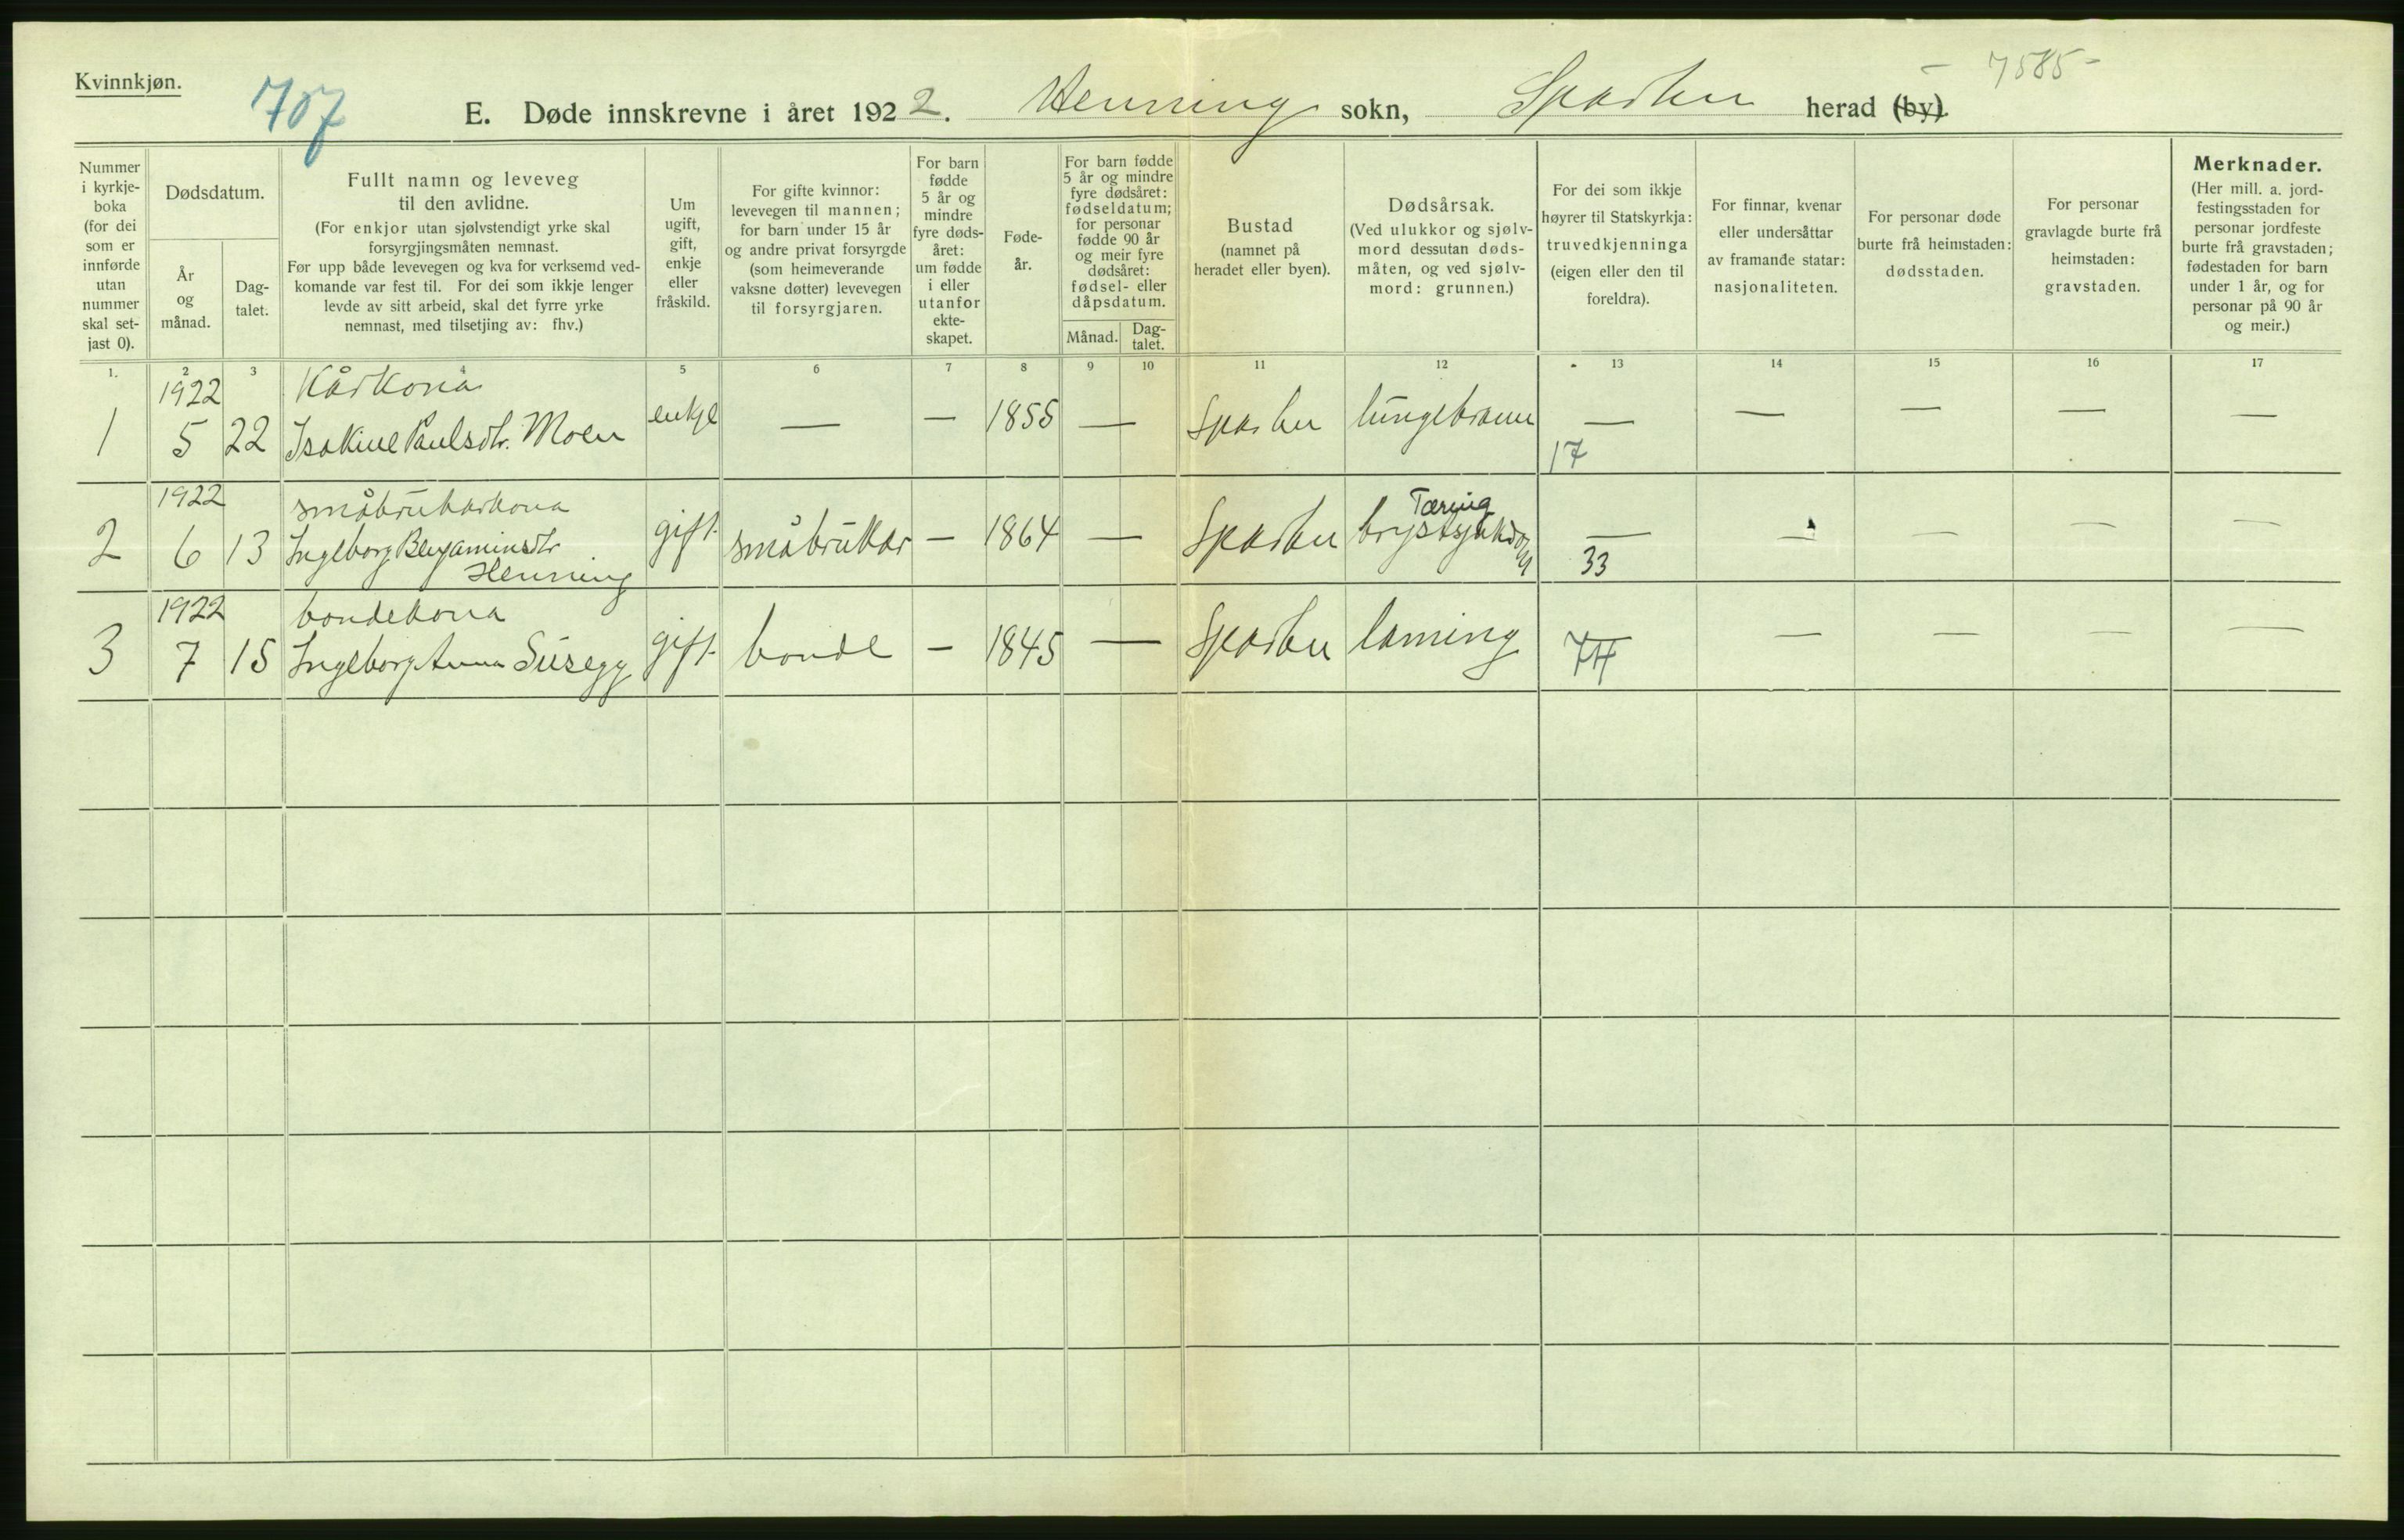 Kvinnkjøn.
707
7585-
E. Døde innskrevne i året 1922. Henning sokn, Sparbu herad (by).
Nummer i kyrkje-boka (for dei som er innførde utan nummer skal set-jast 0).
Dødsdatum.
År og månad.
Dag-talet.
Fullt namn og leveveg til den avlidne.
(For enkjor utan sjølvstendigt yrke skal forsyrgjingsmåten nemnast.
Før upp både levevegen og kva for verksemd ved-komande var fest til. For dei som ikkje lenger levde av sitt arbeid, skal det fyrre yrke nemnast, med tilsetjing av: fhv.)
Um ugift, gift, enkje eller fråskild.
For gifte kvinnor: levevegen til mannen; for barn under 15 år og andre privat forsyrgde (som heimeverande vaksne døtter) levevegen til forsyrgjaren.
For barn fødde 5 år og mindre fyre døds-året: um fødde i eller utanfor ekte-skapet.
Føde-år.
For barn fødde 5 år og mindre fyre dødsåret: fødseldatum; for personar fødde 90 år og meir fyre dødsåret: fødsel- eller dåpsdatum.
Månad.
Dag-talet.
Bustad (namnet på heradet eller byen).
Dødsårsak.
(Ved ulukkor og sjølv-mord dessutan døds-måten, og ved sjølv-mord: grunnen.)
For dei som ikkje høyrer til Statskyrkja: truvedkjenninga (eigen eller den til foreldra).
For finnar, kvenar eller undersåttar av framande statar: nasjonaliteten.
For personar døde burte frå heimstaden: dødsstaden.
For personar gravlagde burte frå heimstaden: gravstaden.
Merknader.
(Her mill. a. jord-festingsstaden for personar jordfeste burte frå gravstaden; fødestaden for barn under 1 år, og for personar på 90 år og meir.)
1. 2 3 4 5 6 7 8 9 10 11 12 13 14 15 16 17
1922 Kårkona
1 5 22 Isakine Paulsdtr. Moen enkje — — 1855 — Sparbu lungebrann — — — — —
17
1922 småbrukarkona Tæring
2 6 13 Ingeborg Benjaminsdtr Henning gift småbrukar — 1864 — Sparbu brystsjukdom — — — — —
33
1922 bondekona
3 7 15 Ingeborg Anna Susegg gift bonde — 1845 — Sparbu laming — — — — —
74